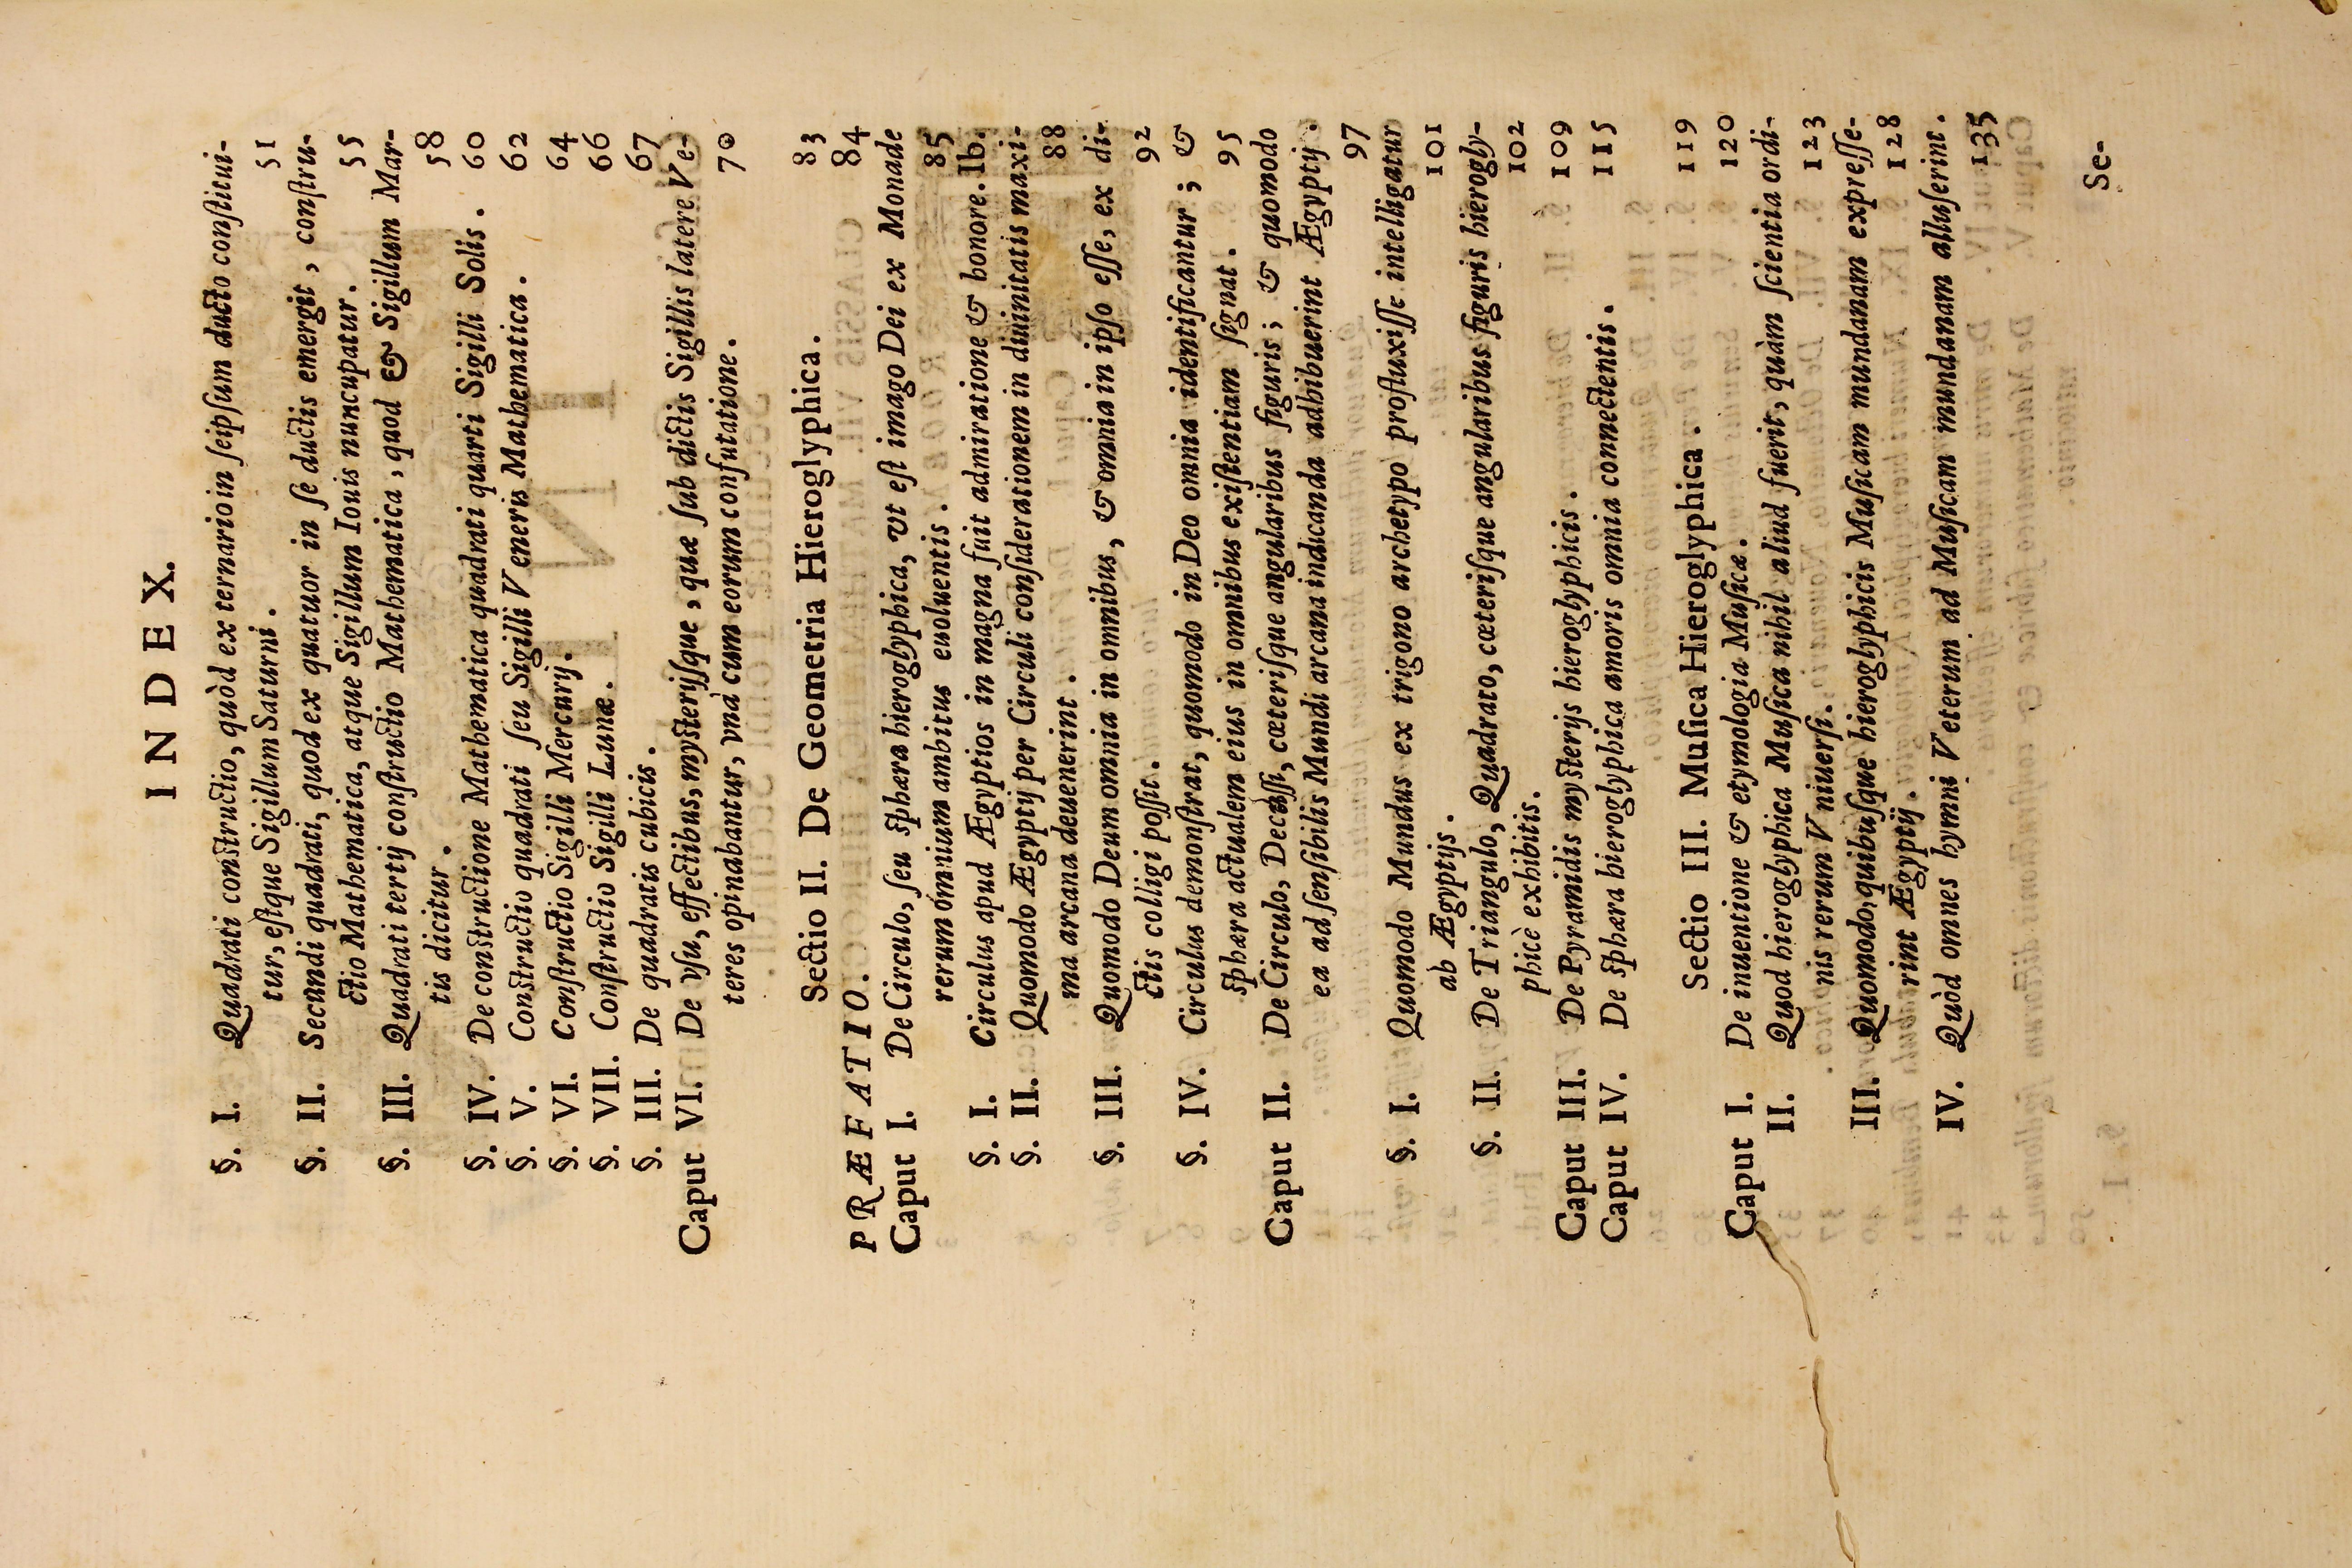 INDEX.
§. I. Quadrati constructio, quòd ex ternario in seipsum ducto constitui-
tur, estque Sigillum Saturni. 51
§. II. Secundi quadrati, quod ex quatuor in se ductis emergit, constru-
ctio Mathematica, atque Sigillum Iouis nuncupatur. 55
§. III. Quadrati tertij constructio Mathematica, quod & Sigillum Mar-
tis dicitur. 58
§. IV. De constructione Mathematica quadrati quarti Sigilli Solis. 60
§. V. Constructio quadrati seu Sigilli Veneris Mathematica. 62
§. VI. Constructio Sigilli Mercurij. 64
§. VII. Constructio Sigilli Lunæ. 66
§. III. De quadratis cubicis. 67
Caput VI. De vsu, effectibus, mysterijsque, quæ sub dictis Sigillis latere Ve-
teres opinabantur, vnà cum eorum confutatione. 70
Sectio II. De Geometria Hieroglyphica. 83
PRÆFATIO. 84
Caput I. De Circulo, seu sphæra hieroglyphica, vt est imago Dei ex Monade
rerum omnium ambitus euoluentis. 85
§. I. Circulus apud Ægyptios in magna fuit admiratione & honore. Ib.
§. II. Quomodo Ægyptij per Circuli considerationem in diuinitatis maxi-
ma arcana deuenerint. 88
§. III. Quomodo Deum omnia in omnibus, & omnia in ipso esse, ex di-
ctis colligi possit. 92
§. IV. Circulus demonstrat, quomodo in Deo omnia identificantur; &
sphæra actualem eius in omnibus existentiam signat. 95
Caput II. De Circulo, Decussi, cæterisque angularibus figuris; & quomodo
ea ad sensibilis Mundi arcana indicanda adhibuerint Ægyptij. 97
§. I. Quomodo Mundus ex trigono archetypo profluxisse intelligatur
ab Ægyptijs. 101
§. II. De Triangulo, Quadrato, cæterisque angularibus figuris hierogly-
phicè exhibitis. 102
Caput III. De Pyramidis mysterijs hieroglyphicis. 109
Caput IV. De sphæra hieroglyphica amoris omnia connectentis. 115
Sectio III. Musica Hieroglyphica. 119
Caput I. De inuentione & etymologia Musicæ. 120
II. Quod hieroglyphica Musica nihil aliud fuerit, quàm scientia ordi-
nis rerum Vniuersi. 123
III. Quomodo, quibusque hieroglyphicis Musicam mundanam expresse-
rint Ægyptij. 128
IV. Quòd omnes hymni Veterum ad Musicam mundanam alluserint. 135
Se-